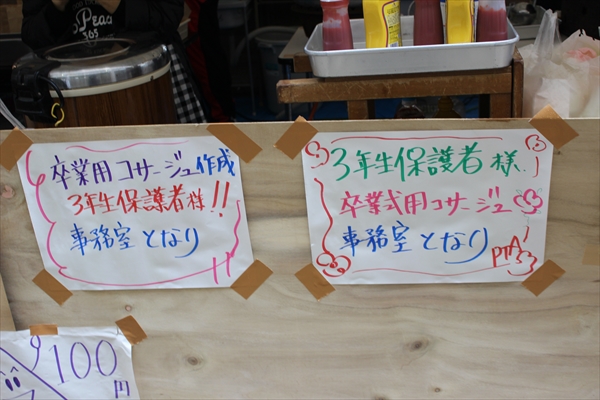 Peace
365
卒業用コサージュ作成
3年生保護者様!!
事務室となり
3年生保護者様
卒業式用コサージュ
事務室となり
PTA
100円